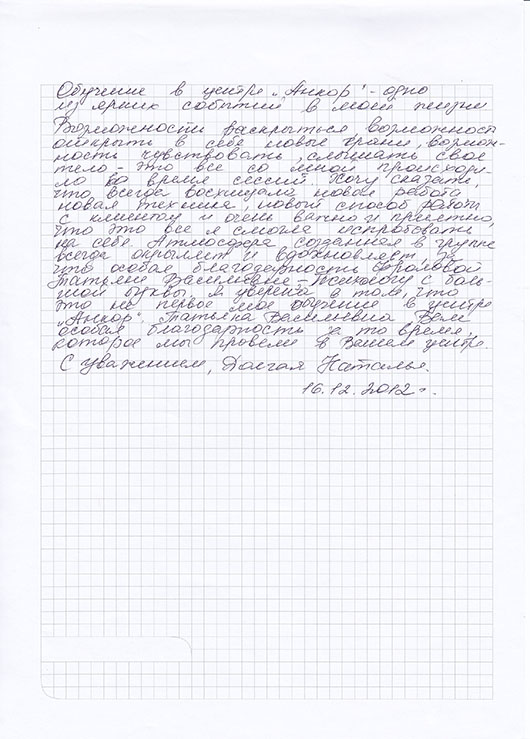 Обучение в центре „Анкор" - одно
из ярких событий в моей жизни
Возможности раскрыться, возможност
открыть в себе новые грани, возмож-
ность чувствовать, слышать свое
тело - это все со мной происходи
ло во время сессий. Хочу сказать,
что всегда восхищала новая работа,
новая техника, новый способ работы
с клиентом и очень важно и приятно,
что это все я смогла испробовать
на себе. Атмосфера созданная в группе
всегда окрыляет и вдохновляет, за
что особая благодарность Фроловой
Татьяне Васильевне - Психологу с боль-
шой буквы. Я уверена в том, что
это не первое мое обучение в центре
„Анкор". Татьяна Васильевна Вам
особая благодарность за то время,
которое мы провели в Вашем центре.
С уважением, Долгая Наталья.
16.12.2012г.